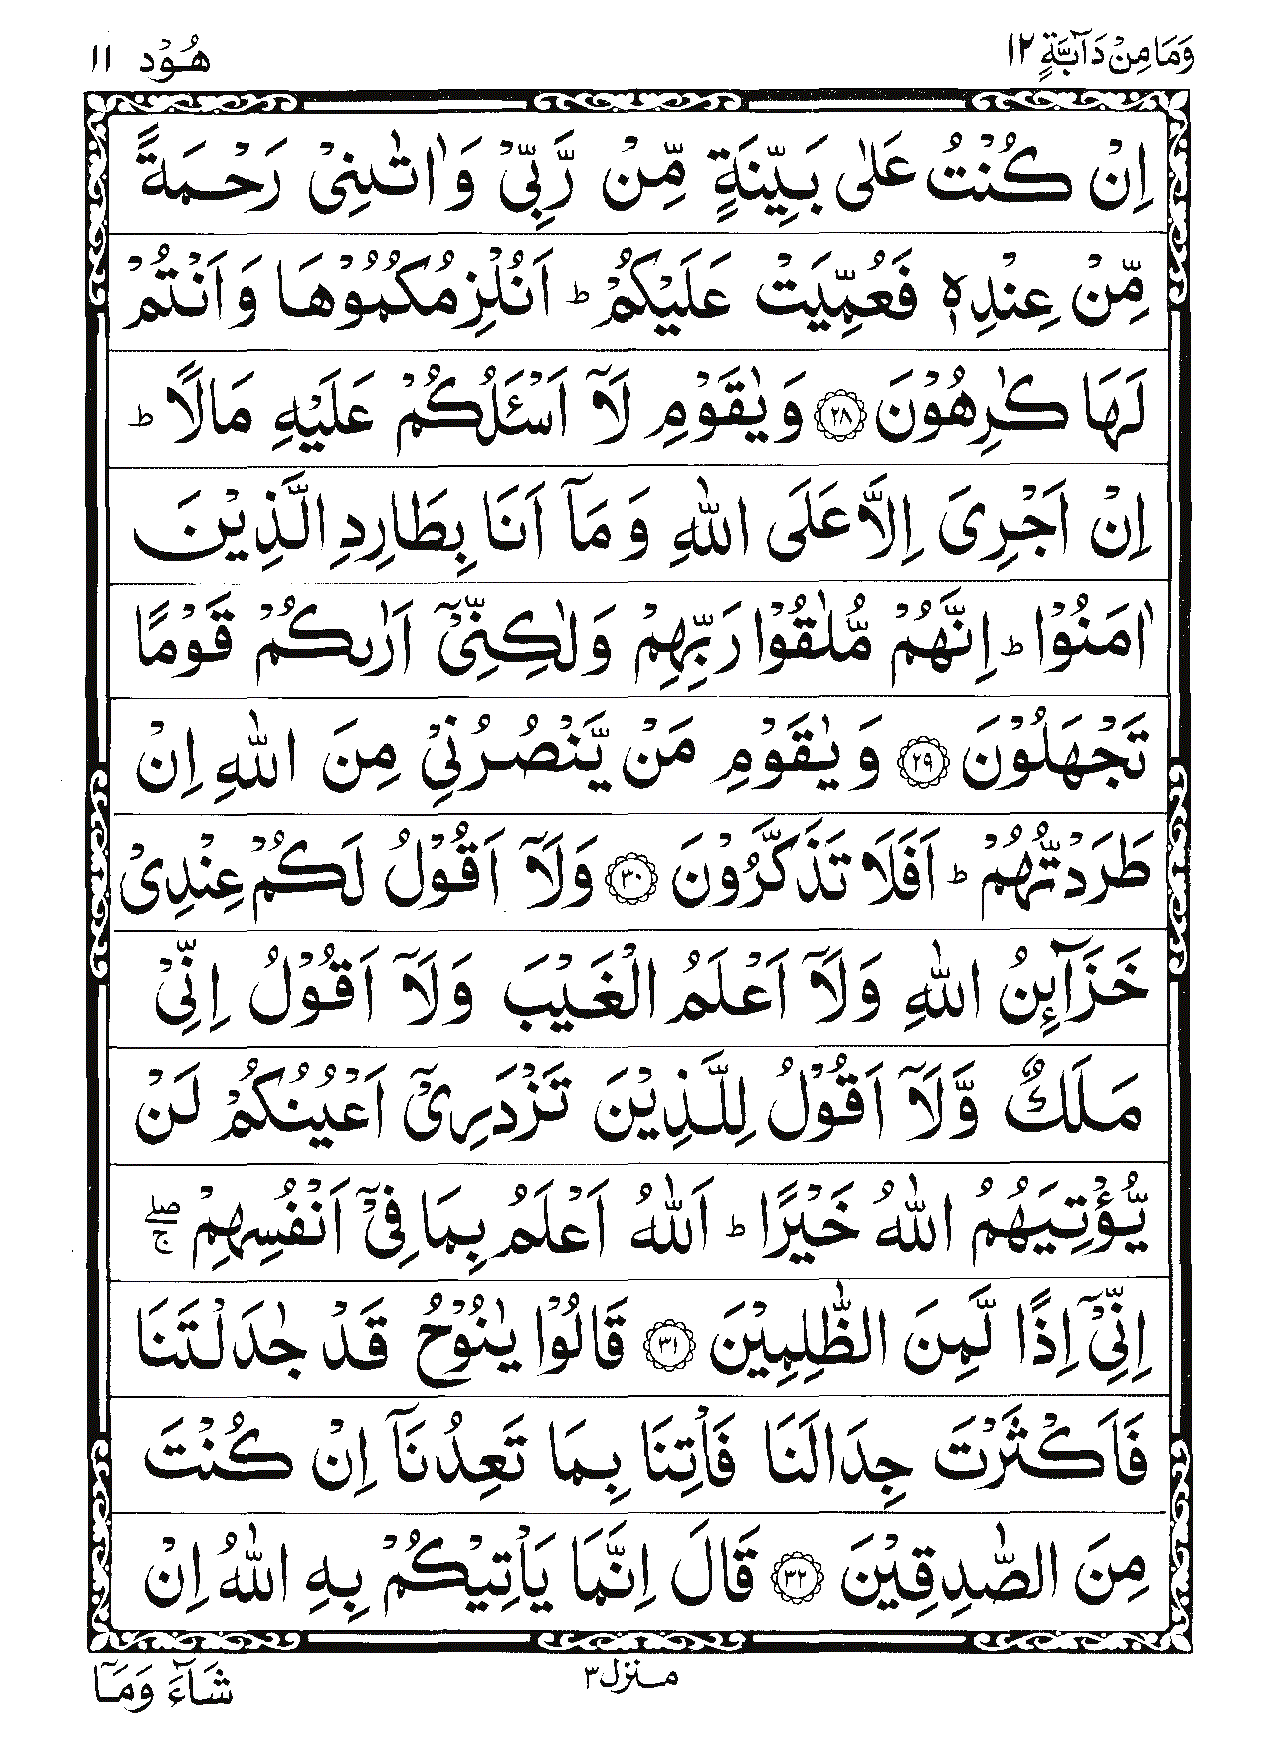 وَمَا مِنْ دَآبَّةٍ ١٢
هُوْد ١١
اِنْ كُنْتُ عَلٰى بَيِّنَةٍ مِّنْ رَّبِّىْ وَاٰتٰىنِىْ رَحْمَةً
مِّنْ عِنْدِهٖ فَعُمِّيَتْ عَلَيْكُمْ ؕ اَنُلْزِمُكُمُوْهَا وَاَنْتُمْ
لَهَا كٰرِهُوْنَ ﴿۲۸﴾ وَيٰقَوْمِ لَاۤ اَسْـَٔلُكُمْ عَلَيْهِ مَالًا ؕ
اِنْ اَجْرِىَ اِلَّا عَلَى اللّٰهِ وَمَاۤ اَنَا بِطَارِدِ الَّذِيْنَ
اٰمَنُوْا ؕ اِنَّهُمْ مُّلٰقُوْا رَبِّهِمْ وَلٰكِنِّىْۤ اَرٰىكُمْ قَوْمًا
تَجْهَلُوْنَ ﴿۲۹﴾ وَيٰقَوْمِ مَنْ يَّنْصُرُنِىْ مِنَ اللّٰهِ اِنْ
طَرَدْتُّهُمْ ؕ اَفَلَا تَذَكَّرُوْنَ ﴿۳۰﴾ وَلَاۤ اَقُوْلُ لَكُمْ عِنْدِىْ
خَزَآئِنُ اللّٰهِ وَلَاۤ اَعْلَمُ الْغَيْبَ وَلَاۤ اَقُوْلُ اِنِّىْ
مَلَكٌ وَّلَاۤ اَقُوْلُ لِلَّذِيْنَ تَزْدَرِىْۤ اَعْيُنُكُمْ لَنْ
يُّؤْتِيَهُمُ اللّٰهُ خَيْرًا ؕ اَللّٰهُ اَعْلَمُ بِمَا فِىْۤ اَنْفُسِهِمْ ۖۚ
اِنِّىْۤ اِذًا لَّمِنَ الظّٰلِمِيْنَ ﴿۳۱﴾ قَالُوْا يٰنُوْحُ قَدْ جٰدَلْتَنَا
فَاَكْثَرْتَ جِدَالَنَا فَاْتِنَا بِمَا تَعِدُنَاۤ اِنْ كُنْتَ
مِنَ الصّٰدِقِيْنَ ﴿۳۲﴾ قَالَ اِنَّمَا يَاْتِيْكُمْ بِهِ اللّٰهُ اِنْ
منزل ۳
شَآءَ وَمَاۤ